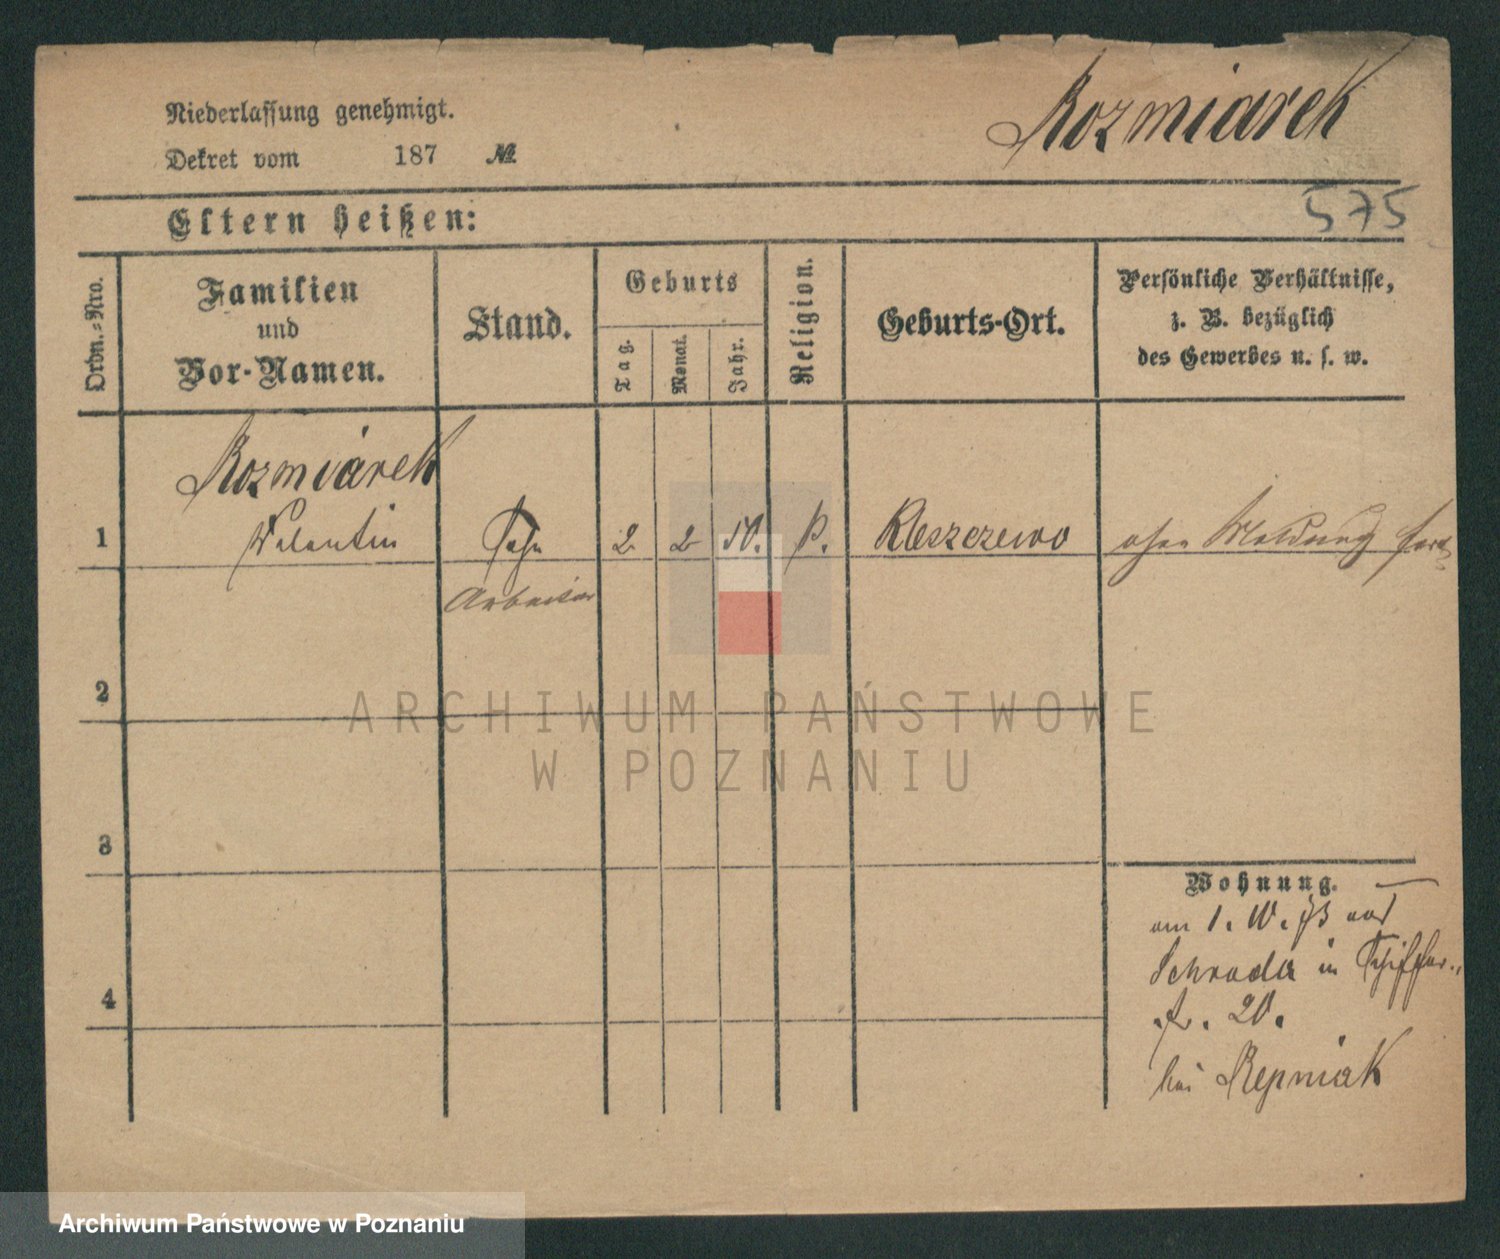 Rozmiarek
Niederlassung genehmigt.
Dekret vom 187 №
575
Eltern heißen:
Ordn.-Nro.
Familien
und
Vor-Namen.
Stand.
Geburts
Tag.
Monat.
Jahr.
Religion.
Geburts-Ort.
Persönliche Verhältnisse,
z. B. bezüglich
des Gewerbes u. s. w.
Rozmiarek
1 Valentin 2 2 50. Kleszczewo ohne Meldung fort
Arbeiter
2
3
4
Wohnung.
am 1. 73 aus
Schroda in Schiffer-
str. 20.
bei Repniak
ARCHIWUM PAŃSTWOWE
W POZNANIU
Archiwum Państwowe w Poznaniu